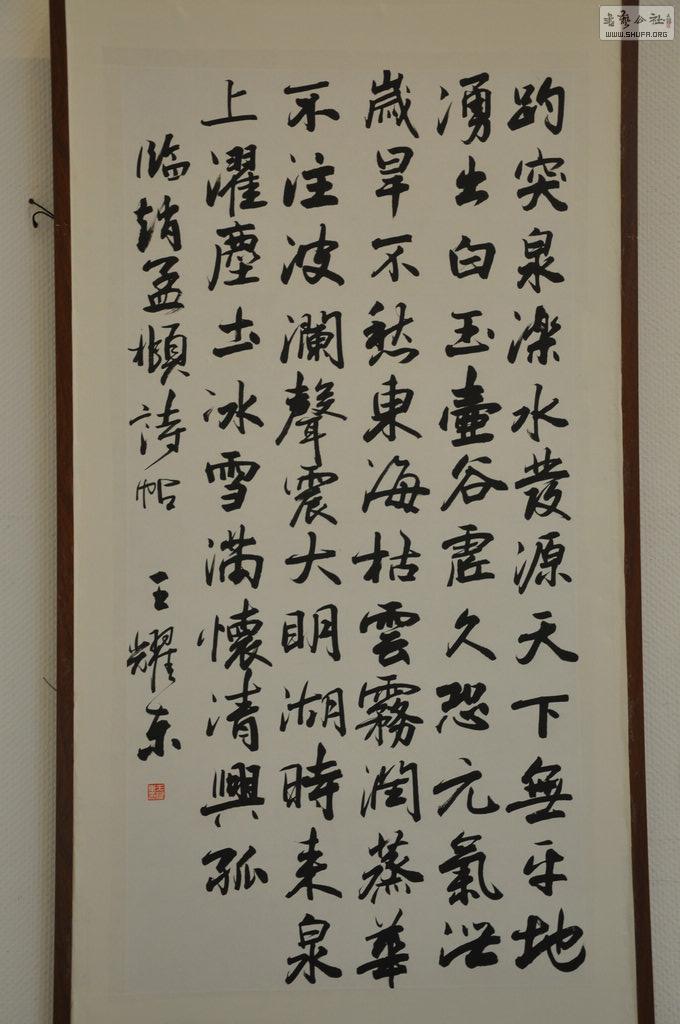 趵突泉濼水發源天下無平地
湧出白玉壺谷虛久恐元氣泄
歲旱不愁東海枯雲霧潤蒸華
不注波瀾聲震大明湖時来泉
上濯塵土冰雪滿懷清興孤
臨趙孟頫詩帖 王耀东
書藝公社
WWW.SHUFA.ORG